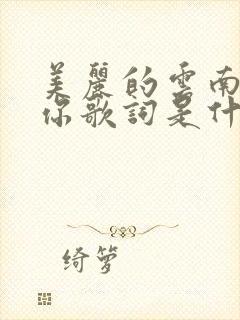 美麗的雲南
你歌詞是什
绮箩